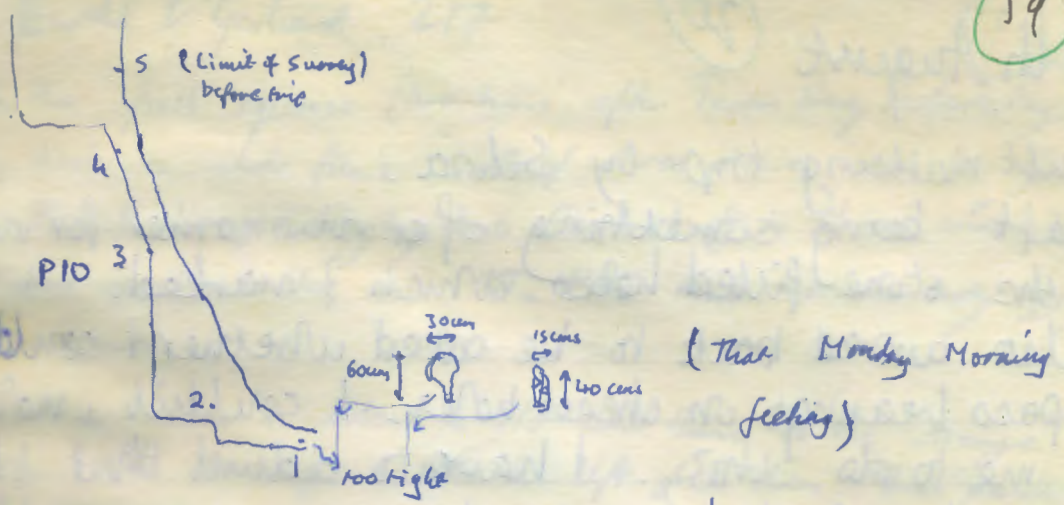 59
5 (Limit of Survey)
before trip
4
3
P10
2.
1
too tight
30cms
60cms
15cms
40cms
(That Monday Morning
feeling)